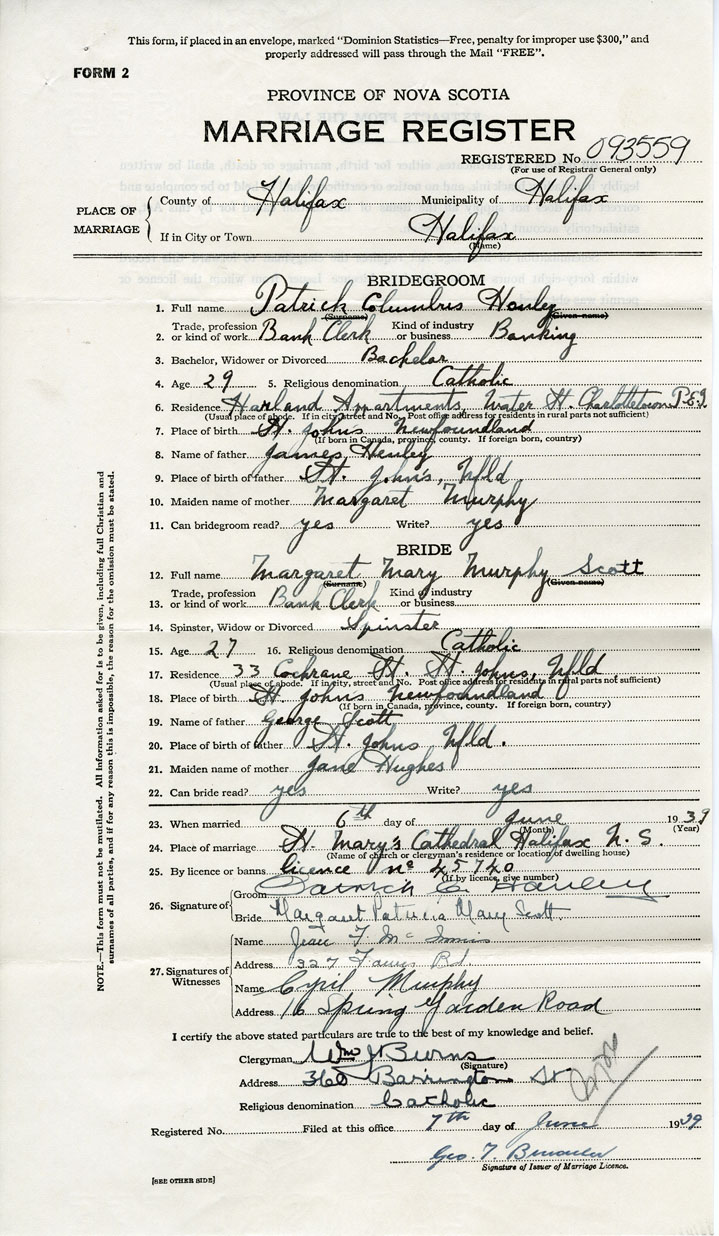 This form, if placed in an envelope, marked "Dominion Statistics—Free, penalty for improper use $300," and
properly addressed will pass through the Mail "FREE".
FORM 2
PROVINCE OF NOVA SCOTIA
MARRIAGE REGISTER
REGISTERED No. 093559
(For use of Registrar General only)
PLACE OF MARRIAGE
County of Halifax Municipality of Halifax
If in City or Town Halifax
(Name)
BRIDEGROOM
1. Full name Patrick Columbus Hanley
(Surname) (Given name)
2. Trade, profession or kind of work Bank Clerk Kind of industry or business Banking
3. Bachelor, Widower or Divorced Bachelor
4. Age 29 5. Religious denomination Catholic
6. Residence Harland Apartments, Water St. Charlottetown P.E.I
(Usual place of abode. If in city, street and No. Post office address for residents in rural parts not sufficient)
7. Place of birth St. Johns Newfoundland
(If born in Canada, province, county. If foreign born, country)
8. Name of father James Henley
9. Place of birth of father St. John's, Nfld
10. Maiden name of mother Margaret Murphy
11. Can bridegroom read? yes Write? yes
BRIDE
12. Full name Margaret Mary Murphy Scott
(Surname) (Given name)
13. Trade, profession or kind of work Bank Clerk Kind of industry or business
14. Spinster, Widow or Divorced Spinster
15. Age 27 16. Religious denomination Catholic
17. Residence 33 Cochrane St. St. Johns, Nfld
(Usual place of abode. If in city, street and No. Post office address for residents in rural parts not sufficient)
18. Place of birth St. Johns Newfoundland
(If born in Canada, province, county. If foreign born, country)
19. Name of father George Scott
20. Place of birth of father St. Johns Nfld.
21. Maiden name of mother Jane Hughes
22. Can bride read? yes Write? yes
23. When married 6th day of June 1939
(Month) (Year)
24. Place of marriage St. Mary's Cathedral Halifax N.S.
(Name of church or clergyman's residence or location of dwelling house)
25. By licence or banns licence no 45740
(If by licence, give number)
26. Signature of
Groom Patrick C. Hanley
Bride Margaret Patricia Mary Scott
27. Signatures of Witnesses
Name Jean F. Mc
Address 327
Name Cyril Murphy
Address 16 Spring Garden Road
I certify the above stated particulars are true to the best of my knowledge and belief.
Clergyman Wm J Burns
(Signature)
Address 360 Barrington St
Religious denomination Catholic
Registered No. Filed at this office 7th day of June 1939
Geo. T.
Signature of Issuer of Marriage Licence.
[SEE OTHER SIDE]
NOTE.—This form must not be mutilated. All information asked for is to be given, including full Christian and
surnames of all parties, and if for any reason this is impossible, the reason for the omission must be stated.